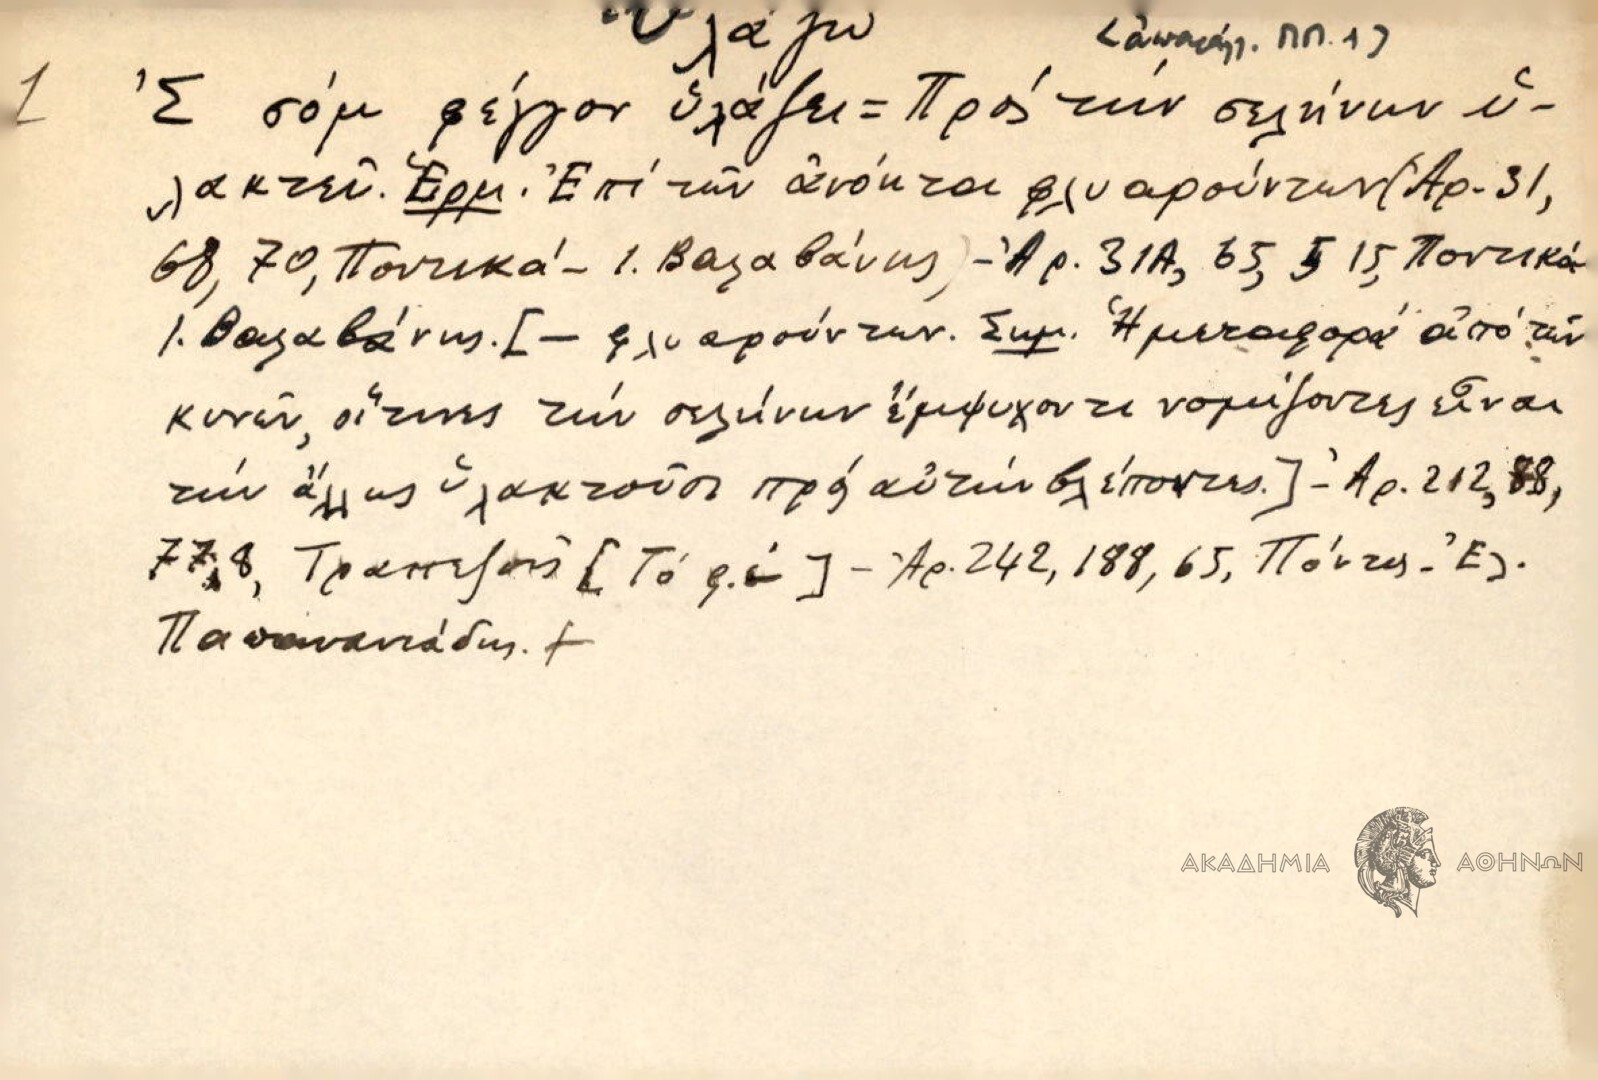 ὑλάζω
<ἀπαράλλ. ΠΠ. 1>
1 Ἐ σόμ φέγγον ὑλάζει = Πρός τήν σελήνην ὑ-
λακτεῖ. Ἑρμ. Ἐπί τῶν ἀνόητα φλυαρούντων (Ἀρ. 31,
68, 70, Ποντικά - Ι. Βαλαβάνης) - Ἀρ. 31Α, 65, 15, Ποντικά
Ι. Βαλαβάνης. [— φλυαρούντων. Σημ. Ἡ μεταφορά ἀπό τῶν
κυνῶν, οἵτινες τήν σελήνην ἔμψυχον τι νομίζοντες εἶναι
τήν ἄλλως ὑλακτοῦσι πρός αὐτήν βλέποντες.] - Ἀρ. 212, 88,
778, Τραπεζοῦς [Τό φ. ὑ] - Ἀρ. 242, 188, 65, Πόντος - Ἐλ.
Παπανανιάδης. +
ΑΚΑΔΗΜΙΑ ΑΘΗΝΩΝ